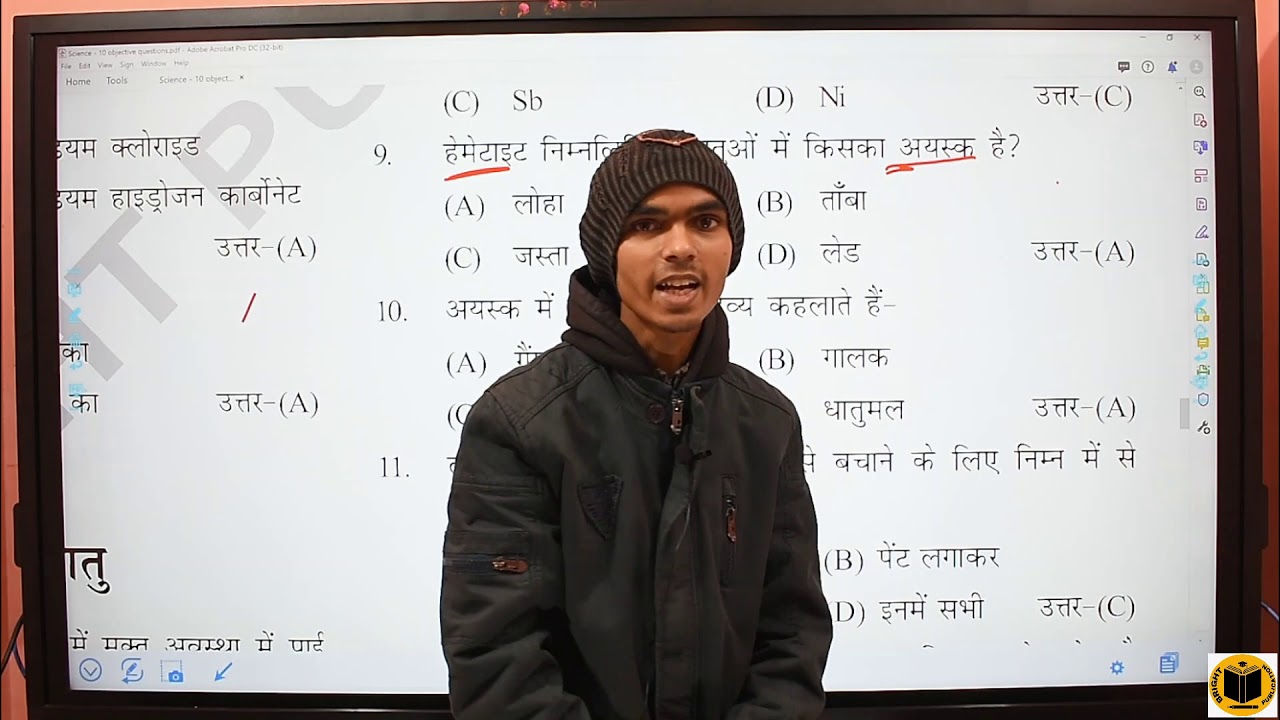 Science - 10 objective questions.pdf - Adobe Acrobat Pro DC (32-bit)
File Edit View Sign Window Help
Home Tools Science - 10 object... ×
(C) Sb (D) Ni उत्तर-(C)
क्लोराइड
9. हेमेटाइट में किसका अयस्क है?
हाइड्रोजन कार्बोनेट
(A) लोहा (B) ताँबा
उत्तर-(A)
(C) जस्ता (D) लेड उत्तर-(A)
10. अयस्क में कहलाते हैं-
का
(A) (B) गालक
का उत्तर-(A)
धातुमल उत्तर-(A)
11. बचाने के लिए निम्न में से
(B) पेंट लगाकर
(D) इनमें सभी उत्तर-(C)
में मुक्त अवस्था में पाई
BRIGHT PUBLICATION